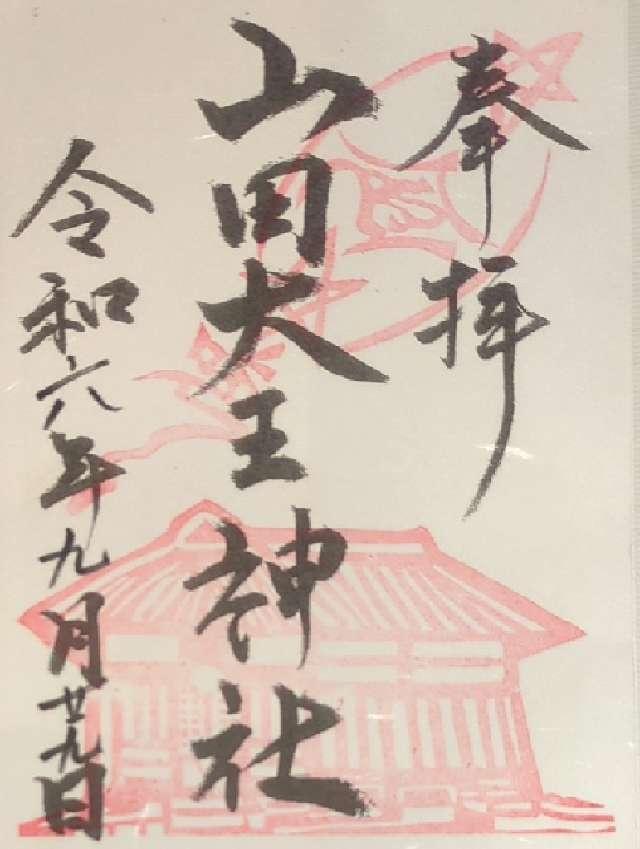 奉拝
山田大王神社
令和六年九月廿九日